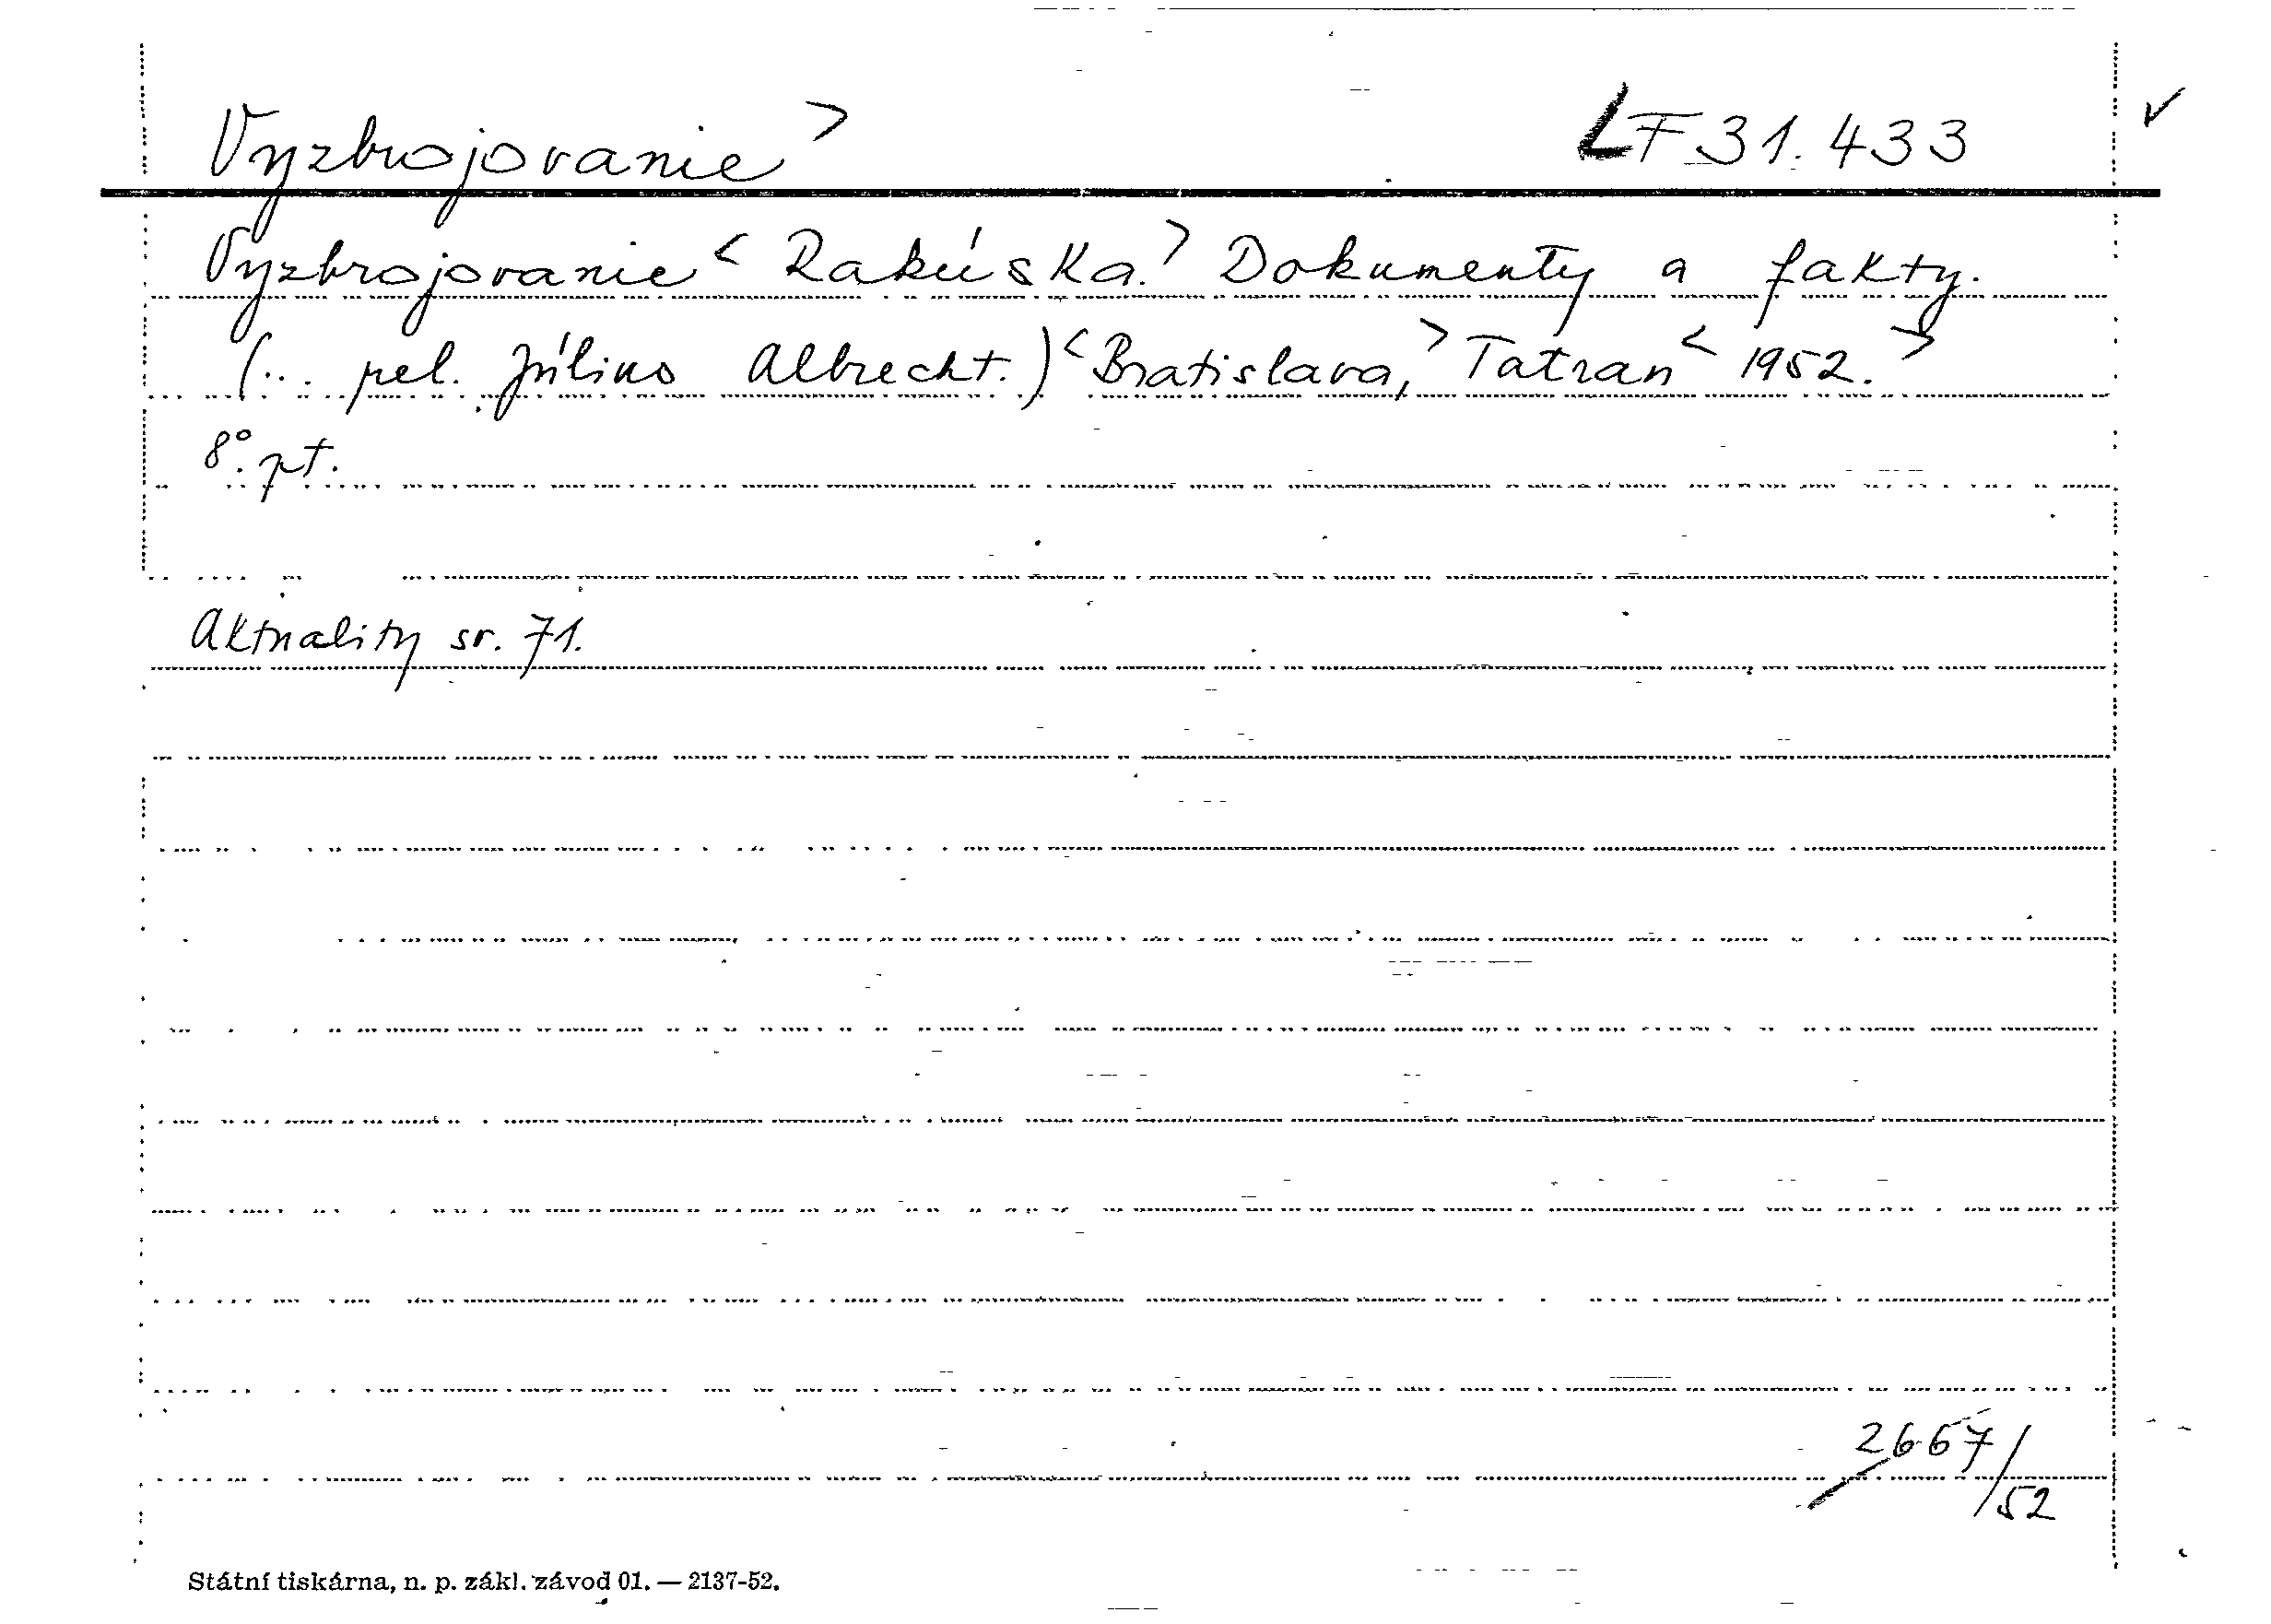 Vyzbrojovanie> LF 31.433 ✓
Vyzbrojovanie< Rakúska.> Dokumenty a fakty.
(... pel. Július Albrecht.)< Bratislava,> Tatran< 1952.>
8°. pt.
Aktuality sv. 71.
2667/52
Státní tiskárna, n. p. zákl. závod 01. — 2137-52.